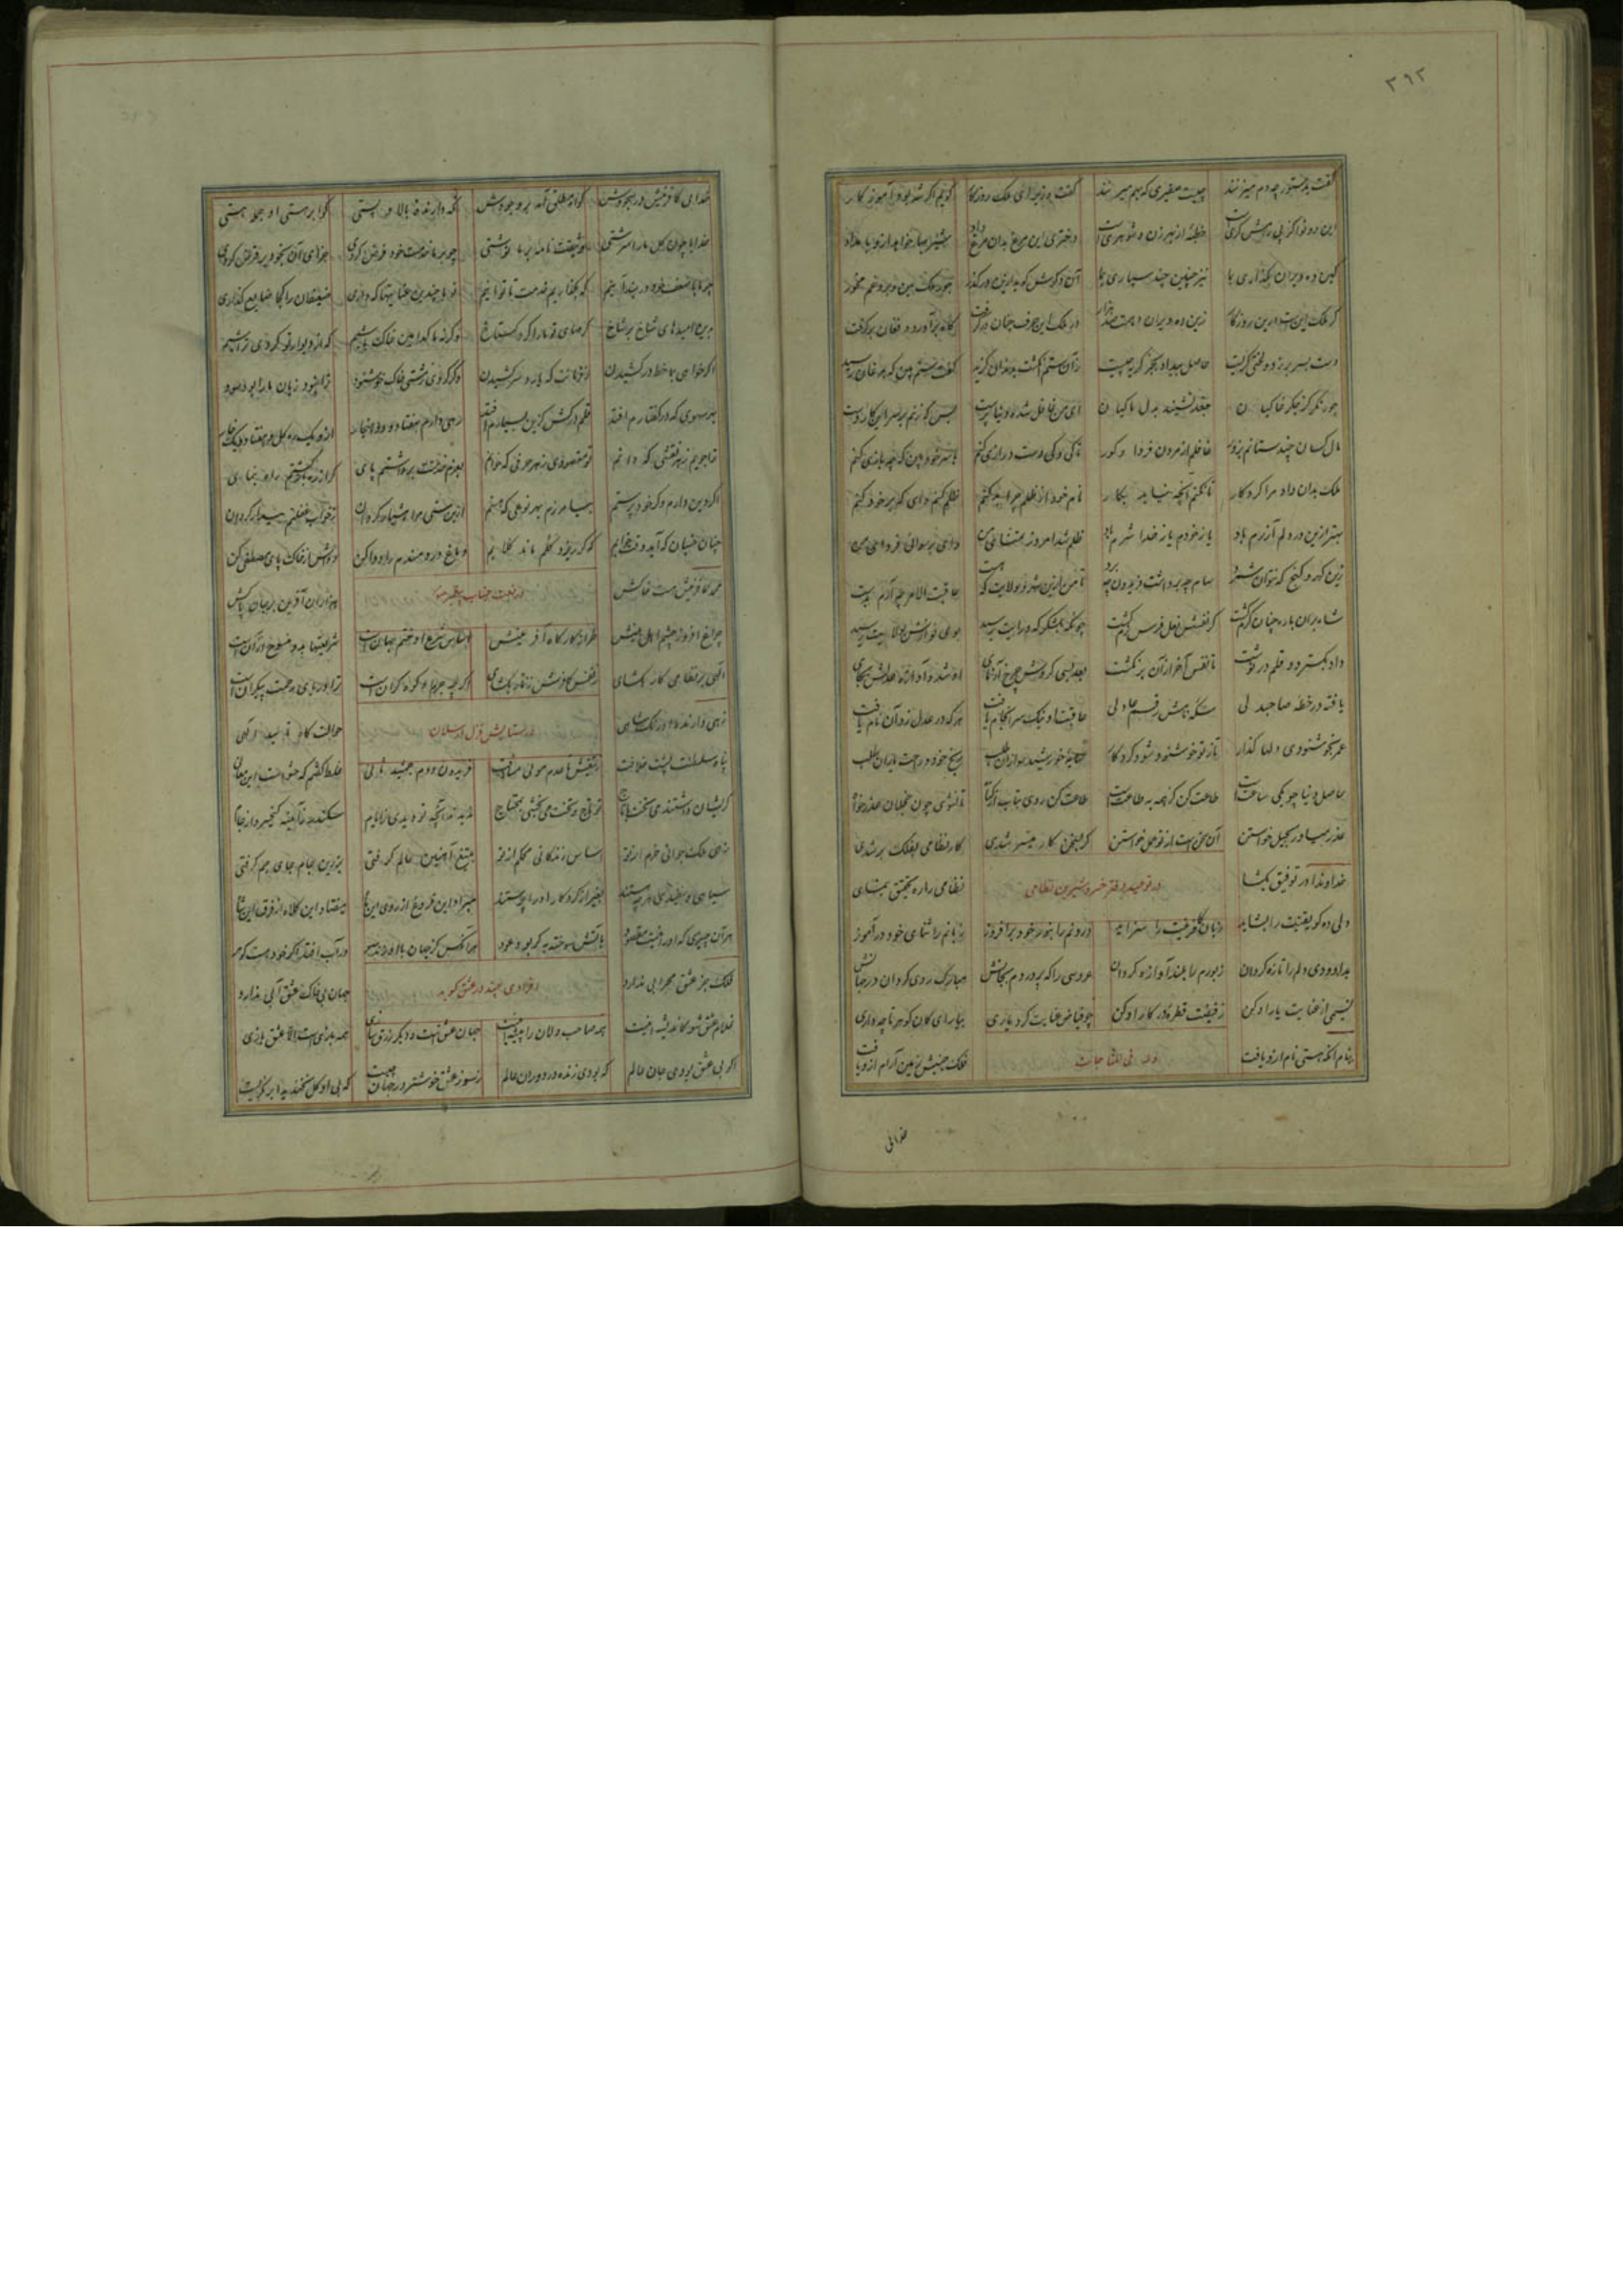 ۳۶۲
گفت بدستور چه دم میزنند چیست صفیری که بهم میزنند گفت وزیر ای ملک روزگار گویم اگر شه بود آموزگار
این دو نوا نز پی رامش گریست خطبه از بهر زن و شوهریست دختری این مرغ بدان مرغ داد شیربها خواهد ازو بامداد
کین ده ویران بگذاری بما نیز چنین چند سپاری بما آن دگرش گو بدازین در گذر جور ملک بین و برو غم مخور
گر ملک اینست درین روزگار زین ده ویران دهمت صد هزار در ملک این حرف چنان درگرفت کاه برآورد و فغان برگرفت
دست بسر بر زد و لختی گریست حاصل بیداد بجز گریه چیست زان ستم انگشت بدندان گزید گفت ستم بین که بمرغان رسید
جور نگر کز جگر خاکیان جغد نشیند بدل ماکیان ای من غافل شده دنیا پرست بس که زنم بر سر این کار دست
مال کسان چند ستانم بزور غافلم از مردن فردا و گور تا کی و کی دست درازی کنم با سر خود بین که چه بازی کنم
ملک بدان داد مرا کردگار تا نکنم آنچه نیاید بکار نام خود از ظلم چرا بد کنم ظلم کنم وای که بر خود کنم
بهتر ازین در دلم آزرم باد یا ز خودم یا ز خدا شرم باد ظلم شد امروز تماشای من وای برسوائی فردای من
زین گهر و گنج که نتوان شمرد سام چه برداشت فریدون چه برد تا من ازین شهر و ولایت که هست عاقبت الامر چه آرم بدست
شاه بران باره چنان گرم گشت کز نفسش نعل فرس نرم گشت چونکه بلشکرگه و رایت رسید بوی نوازش بولایت رسید
داد بگسترد و قلم درنوشت تا نفس آخر از آن برنگشت بعد بسی گردش چرخ آزمای او شد و آوازه عدلش بجای
یافته در خطه صاحبدلی سکه نامش رقم عادلی عاقبتی نیک سرانجام یافت هر که در عدل زد آن نام یافت
عمر بخوشنودی دلها گذار تا ز تو خوشنود شود کردگار سایه خورشید سواران طلب رنج خود و راحت یاران طلب
حاصل دنیا چو یکی ساعتست طاعت کن کز همه به طاعتست طاعت کن روی بتاب از گناه تا نشوی چون خجلان عذرخواه
عذر میاور بحیل خواستن آن سخنست از تو عمل خواستن گر بسخن کار میسر شدی کار نظامی بفلک بر شدی
خداوندا در توفیق بگشا در توحید دفتر خسرو شیرین نظامی نظامی را ره تحقیق بنمای
دلی ده کو یقینت را بشاید زبان کافرینت را سراید درونم را بنور خود برافروز زبانم را ثنای خود درآموز
بداوودی دلم را تازه گردان زبورم را بلند آوازه گردان عروسی را که پروردم بجانش مبارک روی گردان در جهانش
نسیمی از عنایت یار او کن ز فیضت قطره در کار او کن چو فیاض عنایت کرد یاری بیار ای کان گوهر تا چه داری
بنام آنکه هستی نام ازو یافت وله فی المناجات فلک جنبش زمین آرام ازو یافت
خدائی
خدائی کافرینش در سجودش گواه مطلق آمد بر وجودش نگه دارنده بالا و پستی گوا بر هستی او جمله هستی
خدایا چون گل ما را سرشتی وثیقت نامه بر ما نوشتی چو بر ما خدمت خود فرض کردی جزای آن بخود بر فرض کردی
چو ما با ضعف خود دربند آنیم که بگذاریم خدمت تا توانیم تو با چندین عنایتها که داری ضعیفان را کجا ضایع گذاری
بدین امیدهای شاخ بر شاخ کرمهای تو ما را کرد گستاخ وگرنه ما کدامین خاک باشیم که از دیوار تو گردی تراشیم
اگر خواهی بما خط درکشیدن ز فرمانت که یارد سر کشیدن وگر گردی ز مشتی خاک خوشنود ترا نبود زیان ما را بود سود
بهر سهوی که در گفتارم افتد قلم درکش کزین بسیارم افتد رهی دارم بهفتاد و دو هنجار ازو یک ره گل و هفتاد و یک خار
نه جویم ز هر نقشی که دانم تو مقصودی ز هر حرفی که خوانم بعزم خدمت برداشتم پای گر از ره بازگشتم راه بنمای
اگر دین دارم و گر خود پرستم بیامرزم بهر نوعی که هستم ازین مستی مرا هشیار گردان ز خواب غفلتم بیدار گردان
چنان خسبان که آید وقت خوابم که گر ریزد گلم ماند گلابم دماغ دردمندم را دوا کن دواش از خاک پای مصطفی کن
محمد کافرینش هست خاکش در نعت جناب پیغمبر هزاران آفرین بر جان پاکش
چراغ افروز چشم اهل بینش طراز کارگاه آفرینش اساس شرع او ختم جهانست شریعتها بدو منسوخ از آنست
الهی بر نظامی کار بگشای ز نفس کافرش زنار بگشای اگر چه جرم او کوه گرانست ترا دریای رحمت بیکرانست
زهی دارنده اورنگ شاهی درستایش قزل ارسلان حوالت گاه تایید الهی
پناه سلطنت پشت خلافت ز تیغش تا عدم موئی مسافت فریدون دوم جمشید ثانی غلط گفتم که حشوست این معانی
گر ایشان داشتندی تخت با تاج تو تاج و تخت می‌بخشی بمحتاج ندیدند آنچه تو دیدی ز ایام سکندر ز آینه کیخسرو از جام
زهی ملک جوانی خرم از تو اساس زندگانی محکم از تو بتیغ آهنین عالم گرفتی بزرین جام جای جم گرفتی
سیاهی و سفیدی هر چه هستند بغیر از کردگار او را پرستند مبراد این فروغ از روی این ماه میفتاد این کلاه از فرق این شاه
هر آن چیزی که او را نیست مقصود بآتش سوخته به گر بود عود هر آنکس کز جهان با او زند سر در آب افتد اگر خود هست گوهر
فلک جز عشق محرابی ندارد افرادی چند در عشق گوید جهان بی خاک عشق آبی ندارد
غلام عشق شو کاندیشه اینست همه صاحب دلان را پیشه اینست جهان عشق است و دیگر زرق سازی همه بازیست الا عشق بازی
اگر بی عشق بودی جان عالم که بودی زنده در دوران عالم ز سوز عشق خوشتر در جهان چیست که بی او گل نخندید ابر نگریست